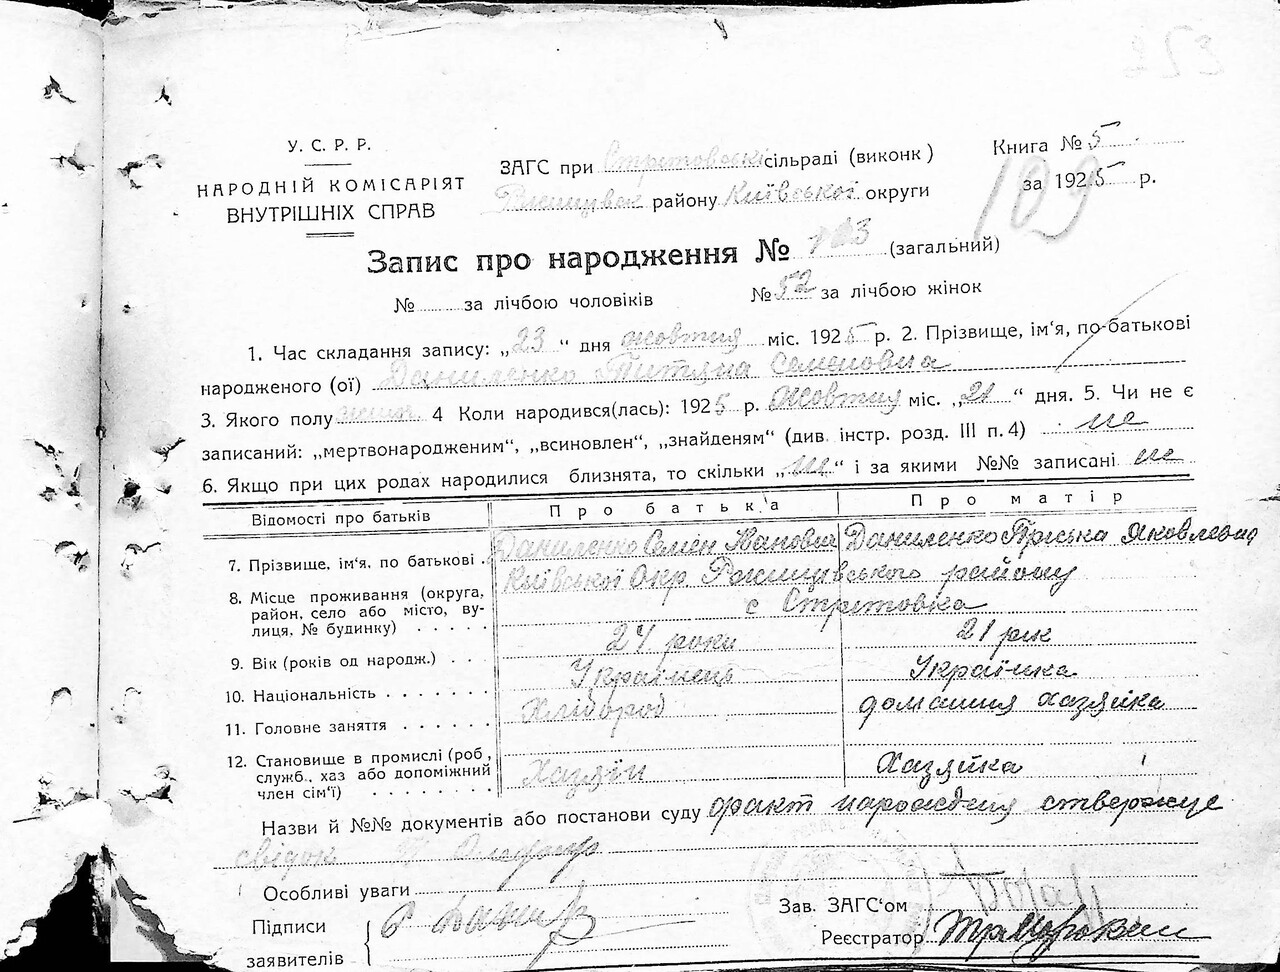 253
У. С. Р. Р.
НАРОДНІЙ КОМІСАРІЯТ
ВНУТРІШНІХ СПРАВ
ЗАГС при Стрітовські сільраді (виконк)
району Київської округи
Книга № 5
за 1925 р.
109
Запис про народження № 103 (загальний)
№ за лічбою чоловіків № 52 за лічбою жінок
1. Час складання запису: „23“ дня жовтня міс. 1925 р. 2. Прізвище, ім‘я, по-батькові
народженого (ої) Даниленко Титяна Семеновна
3. Якого полу жіноч 4 Коли народився(лась): 1925 р. Жовтня міс. „21“ дня. 5. Чи не є
записаний: „мертвонародженим“, „всиновлен“, „знайденям“ (див. інстр. розд. III п. 4) не
6. Якщо при цих родах народилися близнята, то скільки „не“ і за якими №№ записані не
Відомості про батьків Про батька Про матір
7. Прізвище, ім‘я, по батькові . Даниленко Семен Іванович Даниленко Пріська Яковлевна
8. Місце проживання (округа, район, село або місто, вулиця, № будинку) . . . . . Київської Окр. Ржищівського району
с Стритовка
9. Вік (років од народж.) . . . 24 роки 21 рік
10. Національність . . . . . . . Українець Українка
11. Головне заняття . . . . . . Хлібороб домашня хазяйка
12. Становище в промислі (роб., служб., хаз або допоміжний член сім‘ї) . . . . . . . . Хазяїн Хазяйка
Назви й №№ документів або постанови суду факт народження стверджує
свідок
Особливі уваги
Підписи
заявителів
Зав. ЗАГС‘ом
Реєстратор